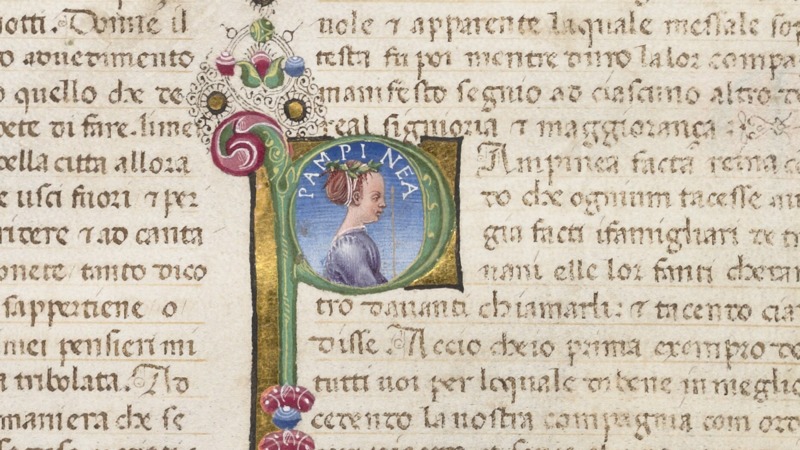 notti. Donne il
o avedimento
o quello che
di fare.
bella citta allora
usci fuori 7 per
ridere 7 ad canta
tanto dico
sappertiene o
miei pensieri mi
tribolata. Ad
maniera che se
uole 7 apparente laquale messale
testa fu poi mentre duro lalor compa
manifesto segnio ad ciascuno altro
real signioria 7 maggioranca
PAMPINEA
Ampinea facta reina
to che ognium tacesse
gia facti ifamigliari
nanti elle lor fanti
tro davanti chiamarli: 7 tacendo cia
disse. Accio cheio prima exempro
tutti uoi per loquale di bene in meglio
cedendo la nostra compagnia com ord